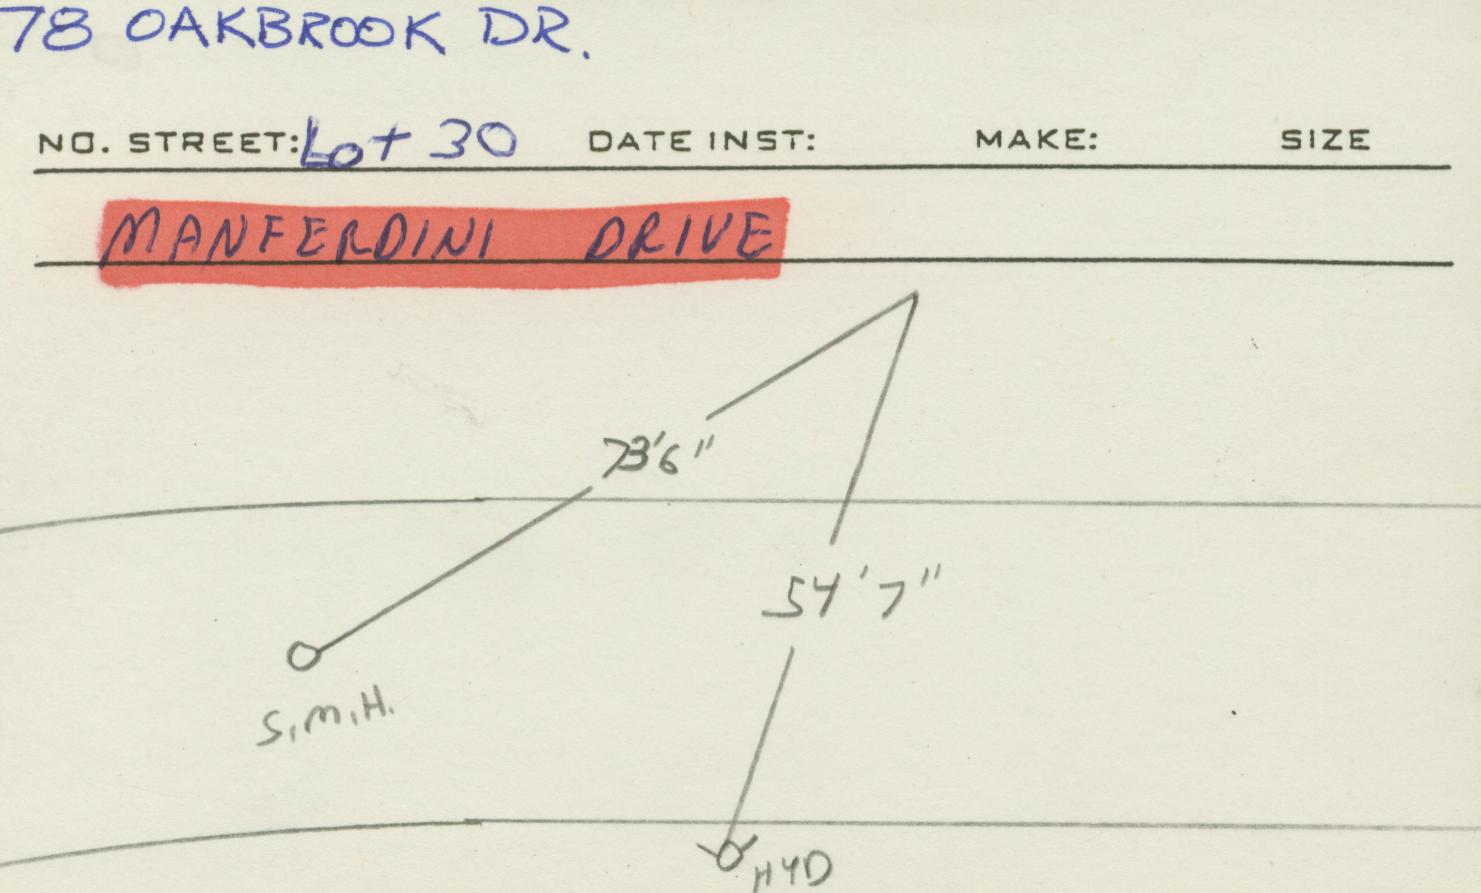 78 OAKBROOK DR.
NO. STREET: Lot 30 DATE INST: MAKE: SIZE
MANFERDINI DRIVE
73'6"
54'7"
S.M.H.
HYD